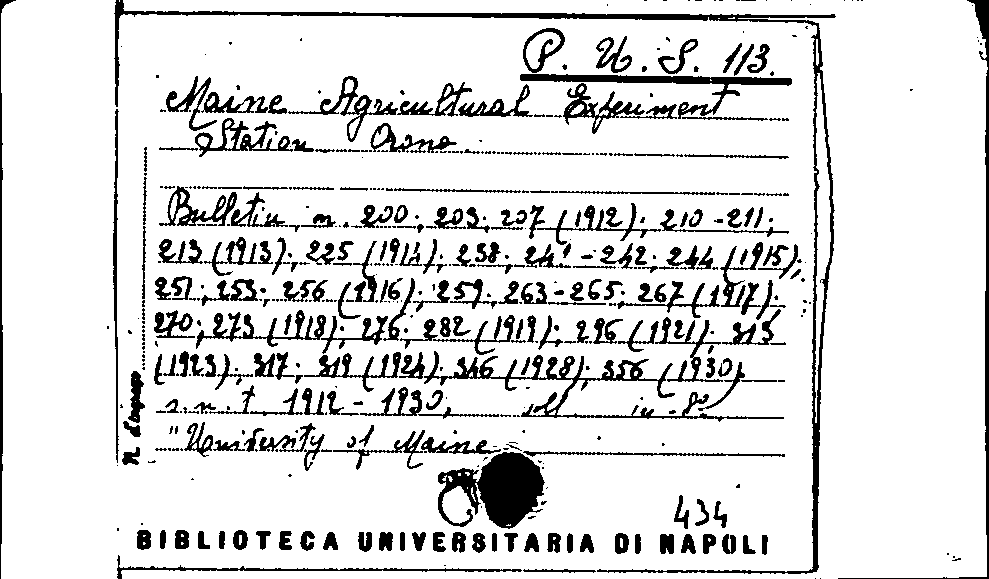 P. U. S. 113.
Maine Agricultural Experiment
Station Orono.
Bulletin, n. 200; 203; 207 (1912); 210-211;
213 (1913); 225 (1914); 238; 241-242; 244 (1915);
251; 253; 256 (1916); 259; 263-265; 267 (1917);
270; 273 (1918); 276; 282 (1919); 296 (1921); 313
(1923); 317; 319 (1924); 346 (1928); 356 (1930)
s. n. t. 1912-1930, ill. in-8°
"University of Maine
434
BIBLIOTECA UNIVERSITARIA DI NAPOLI
N. d'ingresso